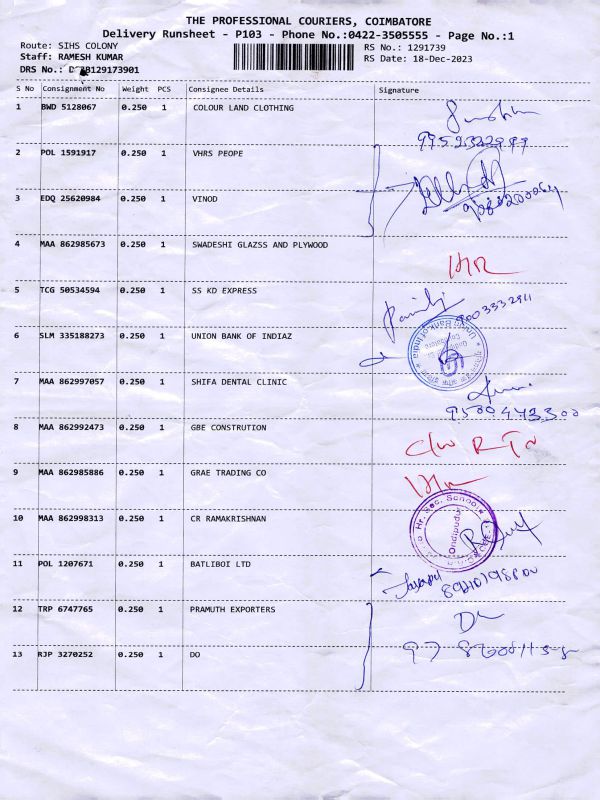 THE PROFESSIONAL COURIERS, COIMBATORE
Delivery Runsheet - P103 - Phone No.:0422-3505555 - Page No.:1
Route: SIHS COLONY
RS No.: 1291739
Staff: RAMESH KUMAR
RS Date: 18-Dec-2023
DRS No.:
S No Consignment No Weight PCS Consignee Details Signature
1 BWD 5128067 0.250 1 COLOUR LAND CLOTHING
2 POL 1591917 0.250 1 VHRS PEOPE
3 EDQ 25620984 0.250 1 VINOD
4 MAA 862985673 0.250 1 SWADESHI GLAZSS AND PLYWOOD
5 TCG 50534594 0.250 1 SS KD EXPRESS
6 SLM 335188273 0.250 1 UNION BANK OF INDIAZ
Union Bank of India
7 MAA 862997057 0.250 1 SHIFA DENTAL CLINIC
9500473300
8 MAA 862992473 0.250 1 GBE CONSTRUTION
9 MAA 862985886 0.250 1 GRAE TRADING CO
10 MAA 862998313 0.250 1 CR RAMAKRISHNAN
Hr. Sec. School
Ondipudur
11 POL 1207671 0.250 1 BATLIBOI LTD
12 TRP 6747765 0.250 1 PRAMUTH EXPORTERS
13 RJP 3270252 0.250 1 DO